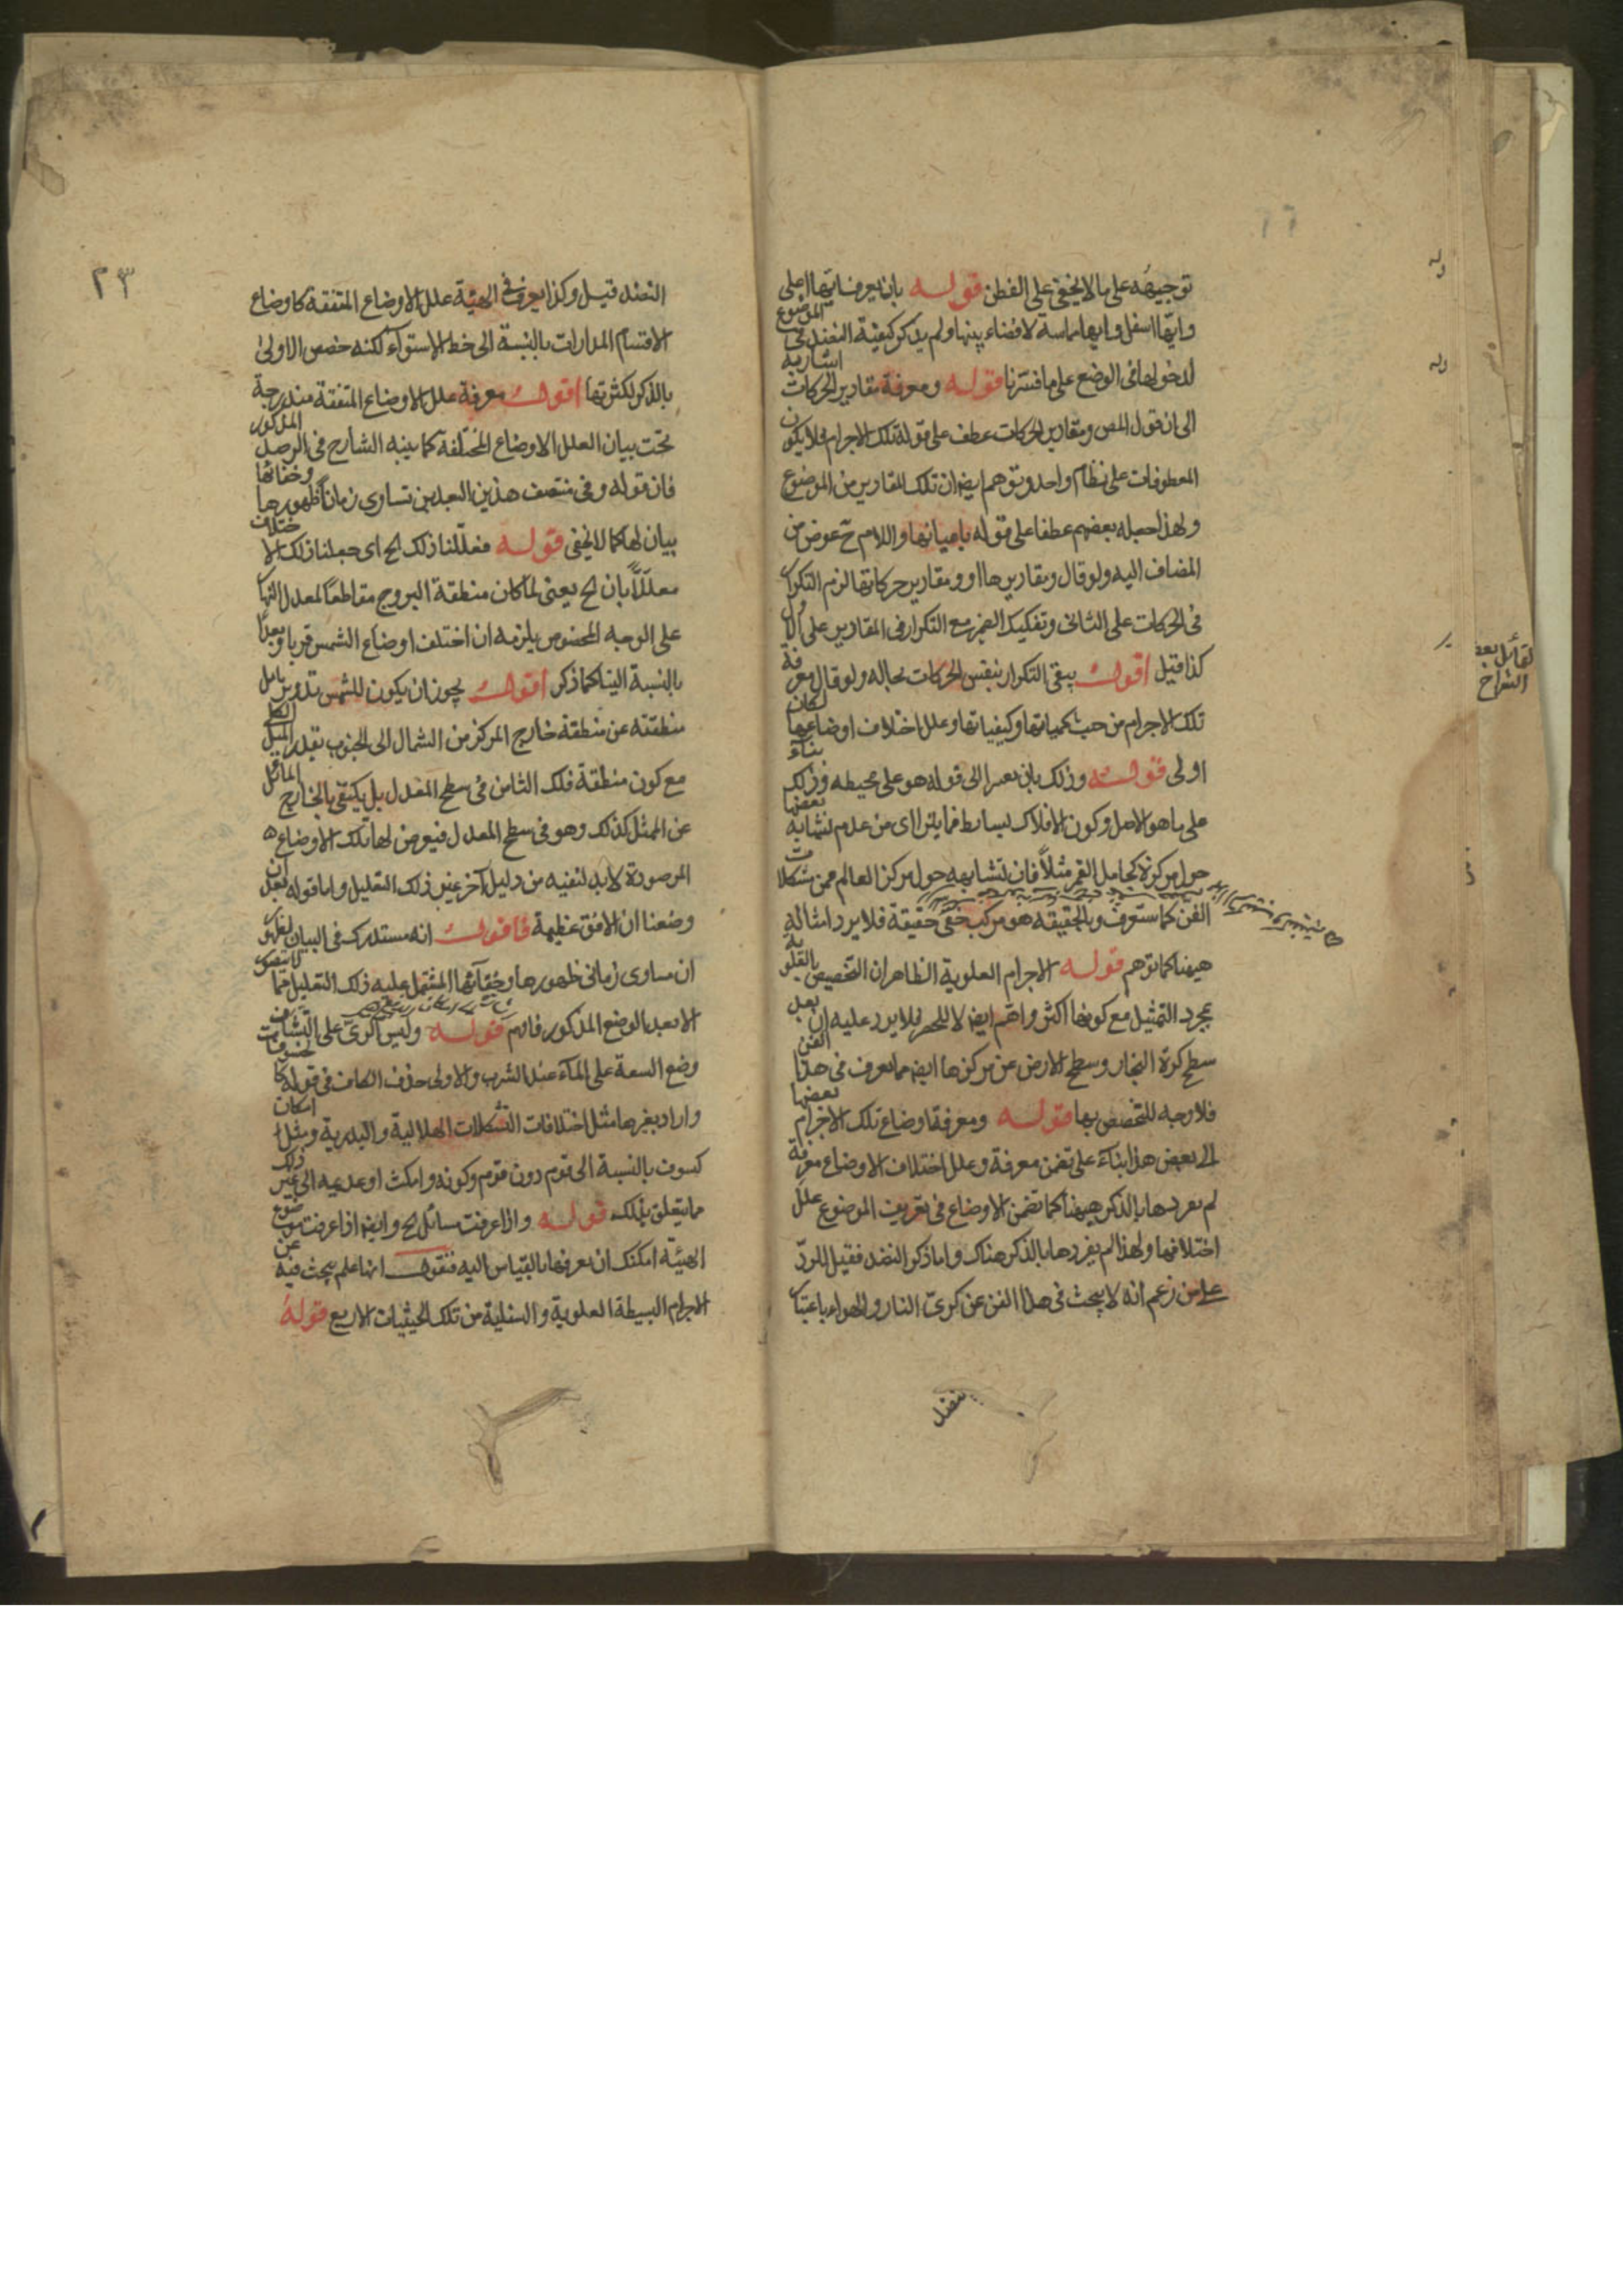 توجيهه على ما لا يخفى على الفطن قوله بان يعرف ايها اعلى
وايها اسفل وايها مماسة لا فضاء بينها ولم يذكر كيفية النضد فى الموضوع
لدخولها فى الوضع على ما فسرنا قوله ومعرفة مقادير الحركات اشار به
الى ان قول المص ومقادير الحركات عطف على قوله تلك الاجرام فلا يكون
المعطوفات على نظام واحد وتوهم ايضا ان تلك المقادير من الموضوع
ولهذا جعله بعضهم عطفا على قوله واللام ح عوض من
المضاف اليه ولو قال ومقاديرها او ومقادير حركاتها لزم التكرار
فى الحركات على الثانى وتفكيك الضمير مع التكرار فى المقادير على الاول
كذا قيل اقول يبقى التكرار بنفس الحركات بحاله ولو قال معرفة
تلك الاجرام من حيث كمياتها وكيفياتها وعلل اختلاف اوضاعها لكان
اولى قوله وذلك بان الى قوله هو على محيطه وذلك بناء
على ما هو الاصل وكون الافلاك بسايط فما يترااى من عدم تشابه بعضها
حول مركزه كحامل القمر مثلا فان تشابهه حول مركز العالم من مشكلات
الفن كما ستعرف وبالحقيقة هو مركب حقيقة فلا يرد امثاله
ههنا كما توهم قوله الاجرام العلوية الظاهر ان التخصيص بالعلوية
بمجرد التمثيل مع كونها اكثر واهم ايضا لا للحصر فلا يرد عليه ان بعد
سطح كرة البخار وسطح الارض عن مركزها ايضا مما يعرف فى هذا الفن
فلا وجه للتخصيص بها قوله ومعرفة اوضاع تلك الاجرام بعضها
الى بعض هذا بناء على تضمن معرفة وعلل اختلاف الاوضاع معرفة
لم يفردها بالذكر ههنا كما تضمن الاوضاع فى تعريف الموضوع علل
اختلافها ولهذا لم يفردها بالذكر هناك واما ذكر النضد فقيل للرد
على من زعم انه لا يبحث فى هذا الفن عن كرتى النار والهواء باعتبار
لقائل بعض
الشراح
٢٣
النضد قيل وكذا يعرف فى الهيئة علل الاوضاع المتفقة كاوضاع
الاقسام المدارات بالنسبة الى خط الاستواء لكنه خصص الاولى
بالذكر لكثرتها اقول معرفة علل الاوضاع المتفقة مندرجة
تحت بيان العلل الاوضاع المختلفة كما بينه الشارح فى الرصد المذكور
فان قوله وفى منتصف هذين البعدين تساوى زمانا ظهورها وخفائها
بيان لها كما لا يخفى قوله فعللنا ذلك الخ اى جعلنا ذلك الاختلاف
معللا بان الخ يعنى لما كان منطقة البروج مقاطعا لمعدل النهار
على الوجه المخصوص يلزمه ان اختلف اوضاع الشمس قربا وبعدا
بالنسبة الينا كما ذكر اقول يجوز ان يكون للشمس تدوير مايل
منطقته عن منطقة خارج المركز من الشمال الى الجنوب بقدر الميل الكلى
مع كون منطقة فلك الثامن فى سطح المعدل بل يكتفى بالخارج المائل
عن الممثل كذلك وهو فى سطح المعدل فيعرض لها تلك الاوضاع
المرصودة لا بد لنفيه من دليل آخر غير ذلك التعليل واما قوله بعد ان
وضعنا ان الافق عظيمة فاقول انه مستدرك فى البيان لظهور
ان مساوى زمانى ظهورها وخفائها المشتمل عليه ذلك التعليل مما لا يتصور
الا بعد الوضع المذكور فافهم قوله وليس الرى على
وضع السعة على الماء عند الشرب والاولى حذف الكاف فى قوله كا لخسوفات
واراد بغيرها مثل اختلافات التشكلات الهلالية والبدرية ومثل امكان
كسوف بالنسبة الى قوم دون قوم وكونه وامكث او عدميه الى غير ذلك
مما يتعلق بذلك قوله واذا عرفت مسائل الخ وايضا اذا عرفت موضوع
الهيئة امكنك ان تعرفها بالقياس اليه فنقول انها علم يبحث فيه عن
الاجرام البسيطة العلوية والسفلية من تلك الحيثيات الاربع قوله